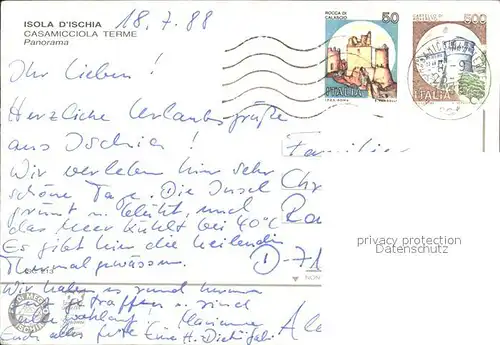 ISOLA D'ISCHIA
CASAMICCIOLA TERME
Panorama
18.7.88
ROCCA DI
CALASCIO
50
ITALIA
500
ITALIA
Ihr Lieben!
Herzliche Urlaubsgrüße
aus Ischia!
Wir verleben hier sehr
schöne Tage. Die Insel
grünt u. blüht, und
das Meer kühlt bei 40°C
Es gibt hier die heilenden
Thermalgewässer.
Wir haben es rund herum
gut getroffen u. sind
wohlauf. Marianne
Euch alles Gute Eure H.
Familie
Chr
Ra
D-71
Ale
privacy protection
Datenschutz